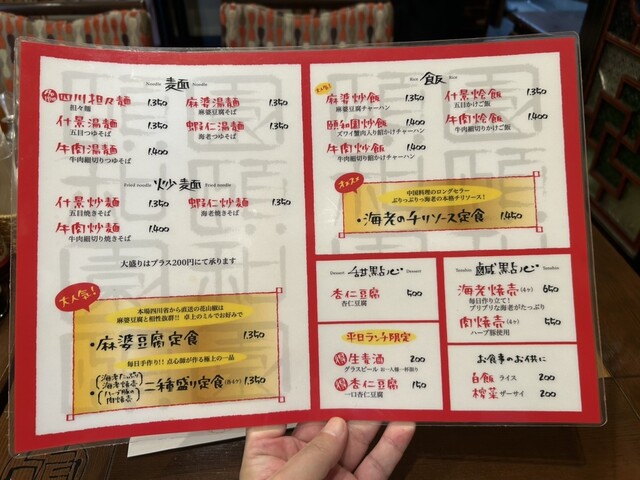 Noodle 麺 Noodle
四川担々麺 1.350
担々麺
什景湯麺 1.350
五目つゆそば
牛肉湯麺 1.400
牛肉細切りつゆそば
麻婆湯麺 1.350
麻婆豆腐そば
蝦仁湯麺 1.350
海老つゆそば
Fried noodle 炒麺 Fried noodle
什景炒麺 1.350
五目焼きそば
牛肉炒麺 1.400
牛肉細切り焼きそば
蝦仁炒麺 1.350
海老焼きそば
大盛りはプラス200円にて承ります
大人気!
本場四川省から直送の花山椒は
麻婆豆腐と相性抜群!! 卓上のミルでお好みで
・麻婆豆腐定食 1.350
毎日手作り!! 点心師が作る極上の一品
・(海老たっぷり海老焼売)(ハーブ豚の肉焼売)二種盛り定食(各4ケ) 1.350
Rice 飯 Rice
麻婆炒飯 1.350
麻婆豆腐チャーハン
頤和園炒飯 1.400
ズワイ蟹肉入り餡かけチャーハン
牛肉炒飯 1.400
牛肉細切り餡かけチャーハン
什景燴飯 1.350
五目かけご飯
牛肉燴飯 1.400
牛肉細切りかけご飯
オススメ
中国料理のロングセラー
ぷりっぷりっ海老の本格チリソース!
・海老のチリソース定食 1.450
Dessert 甜點心 Dessert
杏仁豆腐 500
杏仁豆腐
平日ランチ限定
得 生麦酒 200
グラスビール お一人様一杯限り
得 杏仁豆腐 150
一口杏仁豆腐
Tenshin 鹹點心 Tenshin
海老焼売(4ケ) 650
毎日作り立て!
プリプリな海老がたっぷり
肉焼売(4ケ) 550
ハーブ豚使用
お食事のお供に
白飯 ライス 200
搾菜 ザーサイ 200